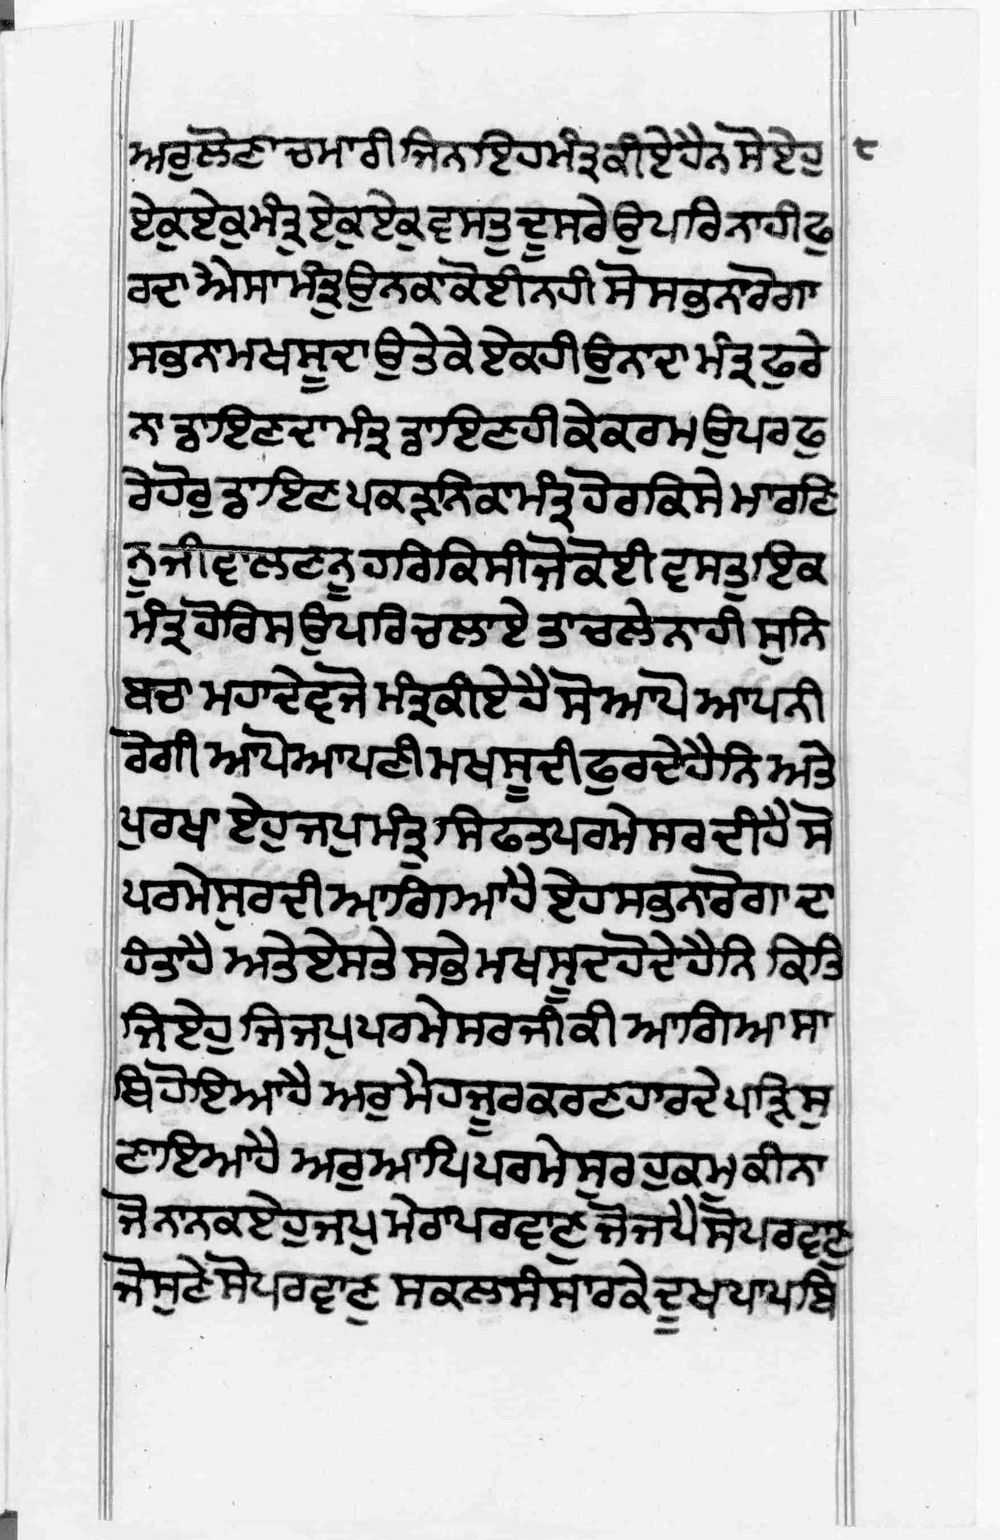 ਅਰੁਲੋਣਾ ਚਮਾਰੀ ਜਿਨਾਇਹਮੰਤ੍ਰਕੀਏਹੈਨ ਸੋ ਏਹੁ ੮
ਏਕੁਏਕੁਮੰਤ੍ਰੁ ਏਕੁਏਕੁ ਵਸਤੁ ਦੂਸਰੇ ਉਪਰਿ ਨਾਹੀਫੁ
ਰਦਾ ਐਸਾ ਮੰਤ੍ਰੁ ਉਨਕਾ ਕੋਈ ਨਹੀ ਸੋ ਸਭਨਾ ਰੋਗਾ
ਸਭਨਾ ਮਖਸੂਦਾ ਉਤੇ ਕੇ ਏਕਹੀ ਉਨਾਦਾ ਮੰਤ੍ਰ ਫੁਰੇ
ਨਾ ਡਾਇਣਦਾ ਮੰਤ੍ਰ ਡਾਇਣਹੀ ਕੇ ਕਰਮ ਉਪਰ ਫੁ
ਰੇ ਹੋਰੁ ਡਾਇਣ ਪਕੜਨਿ ਕਾ ਮੰਤ੍ਰੁ ਹੋਰ ਕਿਸੇ ਮਾਰਣਿ
ਨੁ ਜੀਵਾਲਣਨੂ ਹਰਿ ਕਿਸੀ ਜੋ ਕੋਈ ਵਸਤੁ ਇਕ
ਮੰਤ੍ਰ ਹੋਰਿਸ ਉਪਰਿ ਚਲਾਏ ਤਾ ਚਲੇ ਨਾਹੀ ਸੁਨਿ
ਬਚਾ ਮਹਾਦੇਵ ਜੋ ਮੰਤ੍ਰਕੀਏ ਹੈ ਸੋ ਆਪੋ ਆਪਨੀ
ਰੋਗੀ ਆਪੋਆਪਣੀ ਮਖਸੂਦੀ ਫੁਰਦੇ ਹੈਨਿ ਅਤੇ
ਪੁਰਖਾ ਏਹੁ ਜਪੁ ਮੰਤ੍ਰੁ ਸਿਫਤ ਪਰਮੇਸਰ ਦੀ ਹੈ ਸੋ
ਪਰਮੇਸੁਰ ਦੀ ਆਗਿਆ ਹੈ ਏਹ ਸਭਨਾ ਰੋਗਾ ਦਾ
ਹਿਤਾ ਹੈ ਅਤੇ ਏਸਤੇ ਸਭੇ ਮਖਸੂਦ ਹੋਦੇ ਹੈਨਿ ਕਿਤਿ
ਜਿ ਏਹੁ ਜਿ ਜਪੁ ਪਰਮੇਸਰ ਜੀ ਕੀ ਆਗਿਆ ਸਾ
ਥਿ ਹੋਇਆ ਹੈ ਅਰੁ ਮੈ ਹਜੂਰ ਕਰਣਹਾਰ ਦੇ ਪੜਿ ਸੁ
ਣਾਇਆ ਹੈ ਅਰੁ ਆਪਿ ਪਰਮੇਸੁਰ ਹੁਕਮੁ ਕੀਨਾ
ਜੋ ਨਾਨਕ ਏਹੁ ਜਪੁ ਮੇਰਾ ਪਰਵਾਣੁ ਜੋ ਜਪੈ ਸੋ ਪਰਵਾਣੁ
ਜੋ ਸੁਣੇ ਸੋ ਪਰਵਾਣੁ ਸਕਲ ਸੰਸਾਰ ਕੇ ਦੂਖ ਪਾਪ ਬਿ